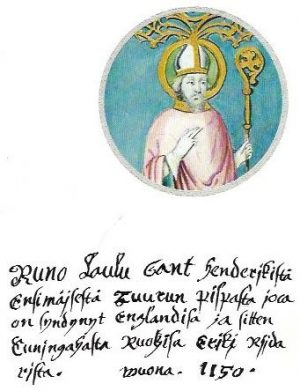 Runo Laulu Sant henderikistä
Ensimäisestä Tuurun pispasta joca
on syndynyt Englandisa ja sitten
Cuningahasta Ruotzisa Eriki
rista. wuona. 1150.